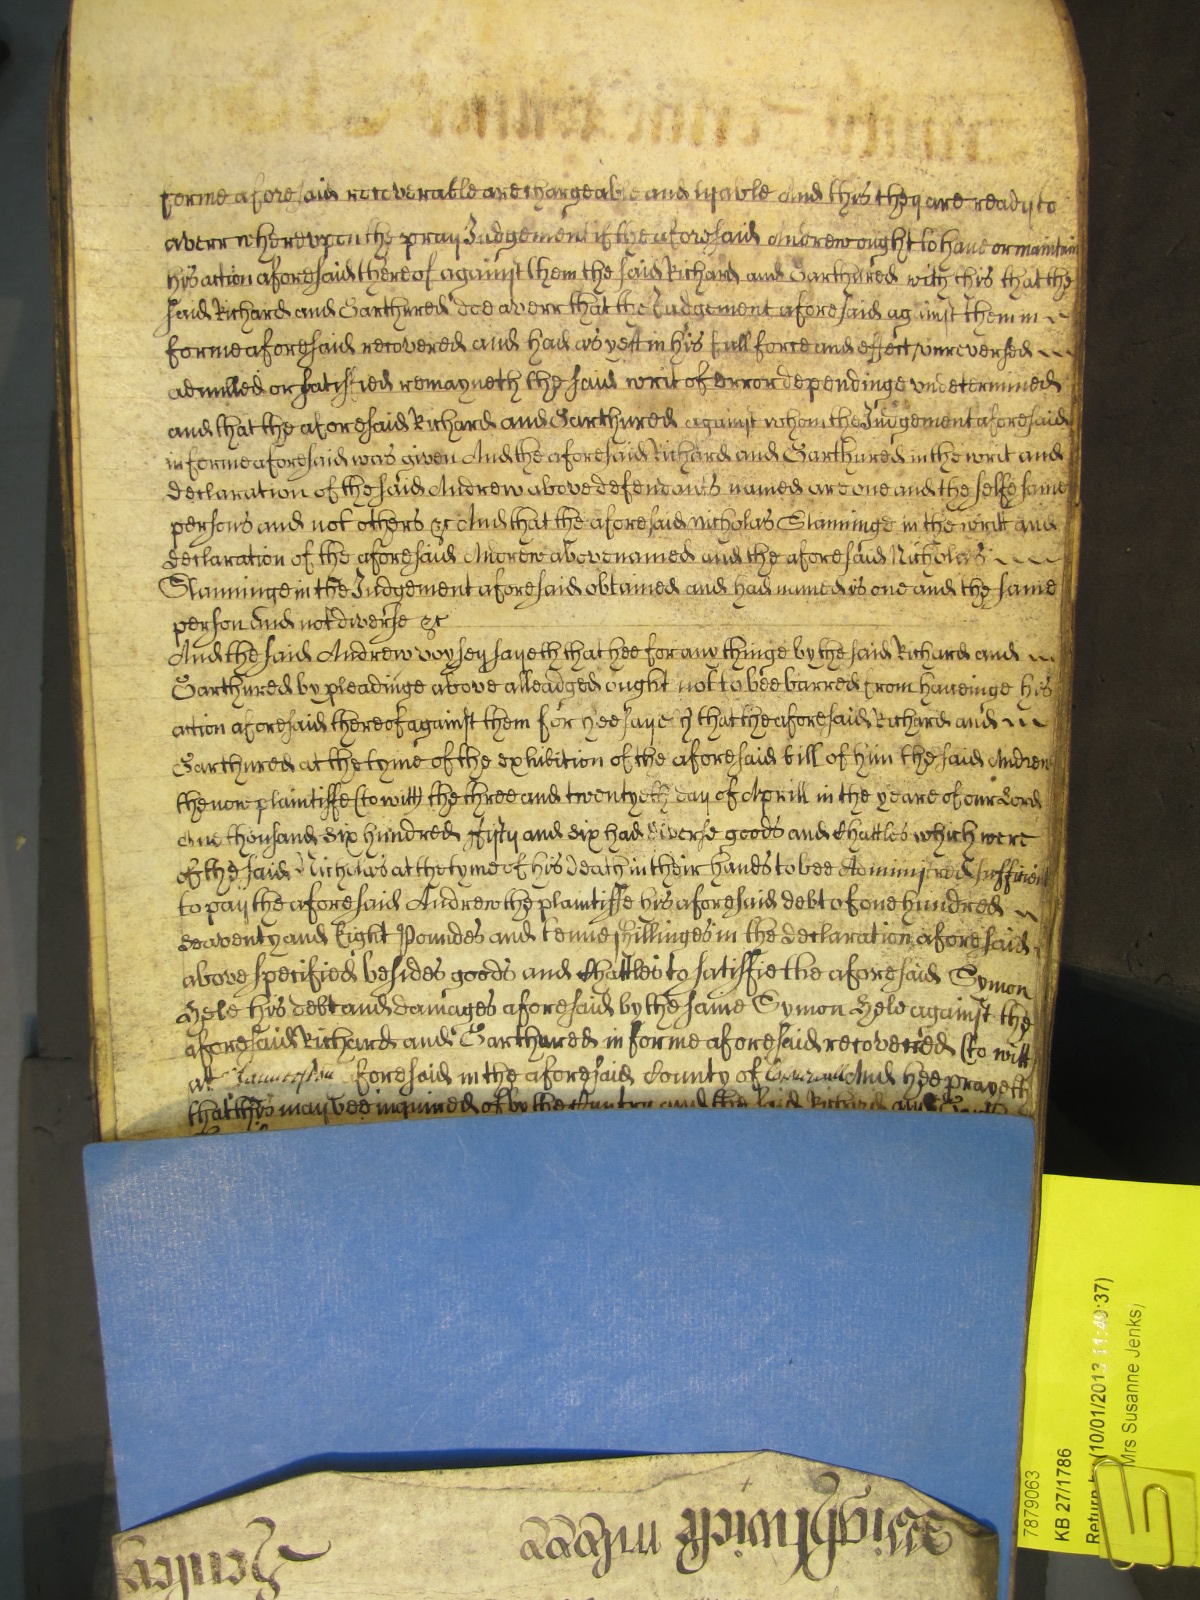 forme aforesaid recoverable are chargeable and lyable And this they are ready to
averr wherevpon the pray Judgement if the aforesaid Andrew ought to have or maintain
his action aforesaid thereof against them the said Richard and Garthured with this that the
said Richard and Garthured doe averr that the Judgement aforesaid against them in
forme aforesaid recovered and had as yett in his full force and effect vnreversed
adnulled or satisfied remayneth the said writ of error dependinge vndetermined
and that the aforesaid Richard and Garthured against whom the Judgement aforesaid
in forme aforesaid was given And the aforesaid Richard and Garthured in the writ and
declaration of the said Andrew above defendants named are one and the selfe same
persons and not others &c And that the aforesaid Nicholas Slanninge in the writt and
declaration of the aforesaid Andrew above named and the aforesaid Nicholas
Slanninge in the Judgement aforesaid obtained and had named is one and the same
person And not diverse &c
And the said Andrew voysey sayeth that hee for any thinge by the said Richard and
Garthured by pleadinge above alleadged ought not to bee barred from haveinge his
action aforesaid thereof against them for hee sayeth that the aforesaid Richard and
Garthured at the tyme of the exhibition of the aforesaid bill of him the said Andrew
the now plaintiffe (to witt) the three and twentyeth day of Aprill in the yeare of our Lord
one thousand six hundred fifty and six had diverse goods and Chattles which were
of the said Nicholas at the tyme of his death in their hands to bee Administred sufficient
to pay the aforesaid Andrew the plaintiffe his aforesaid debt of one hundred
seaventy and Eight Poundes and tenne shillinges in the declaration aforesaid
above specified besides goods and Chattles to satisfie the aforesaid Symon
Hele his debt and damages aforesaid by the same Symon Hele against the
aforesaid Richard and Garthured in forme aforesaid recovered (to witt
at Launceston aforesaid in the aforesaid County of Cornwall And hee prayeth
that this may bee inquired of by the Country and the said Richard and
Wightwick
7879063
KB 27/1786
Return by (10/01/2013 11:49:37)
Mrs Susanne Jenks)